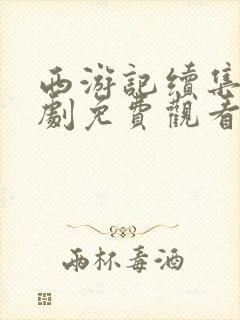 西游記續集
劇免費觀看
兩杯毒酒